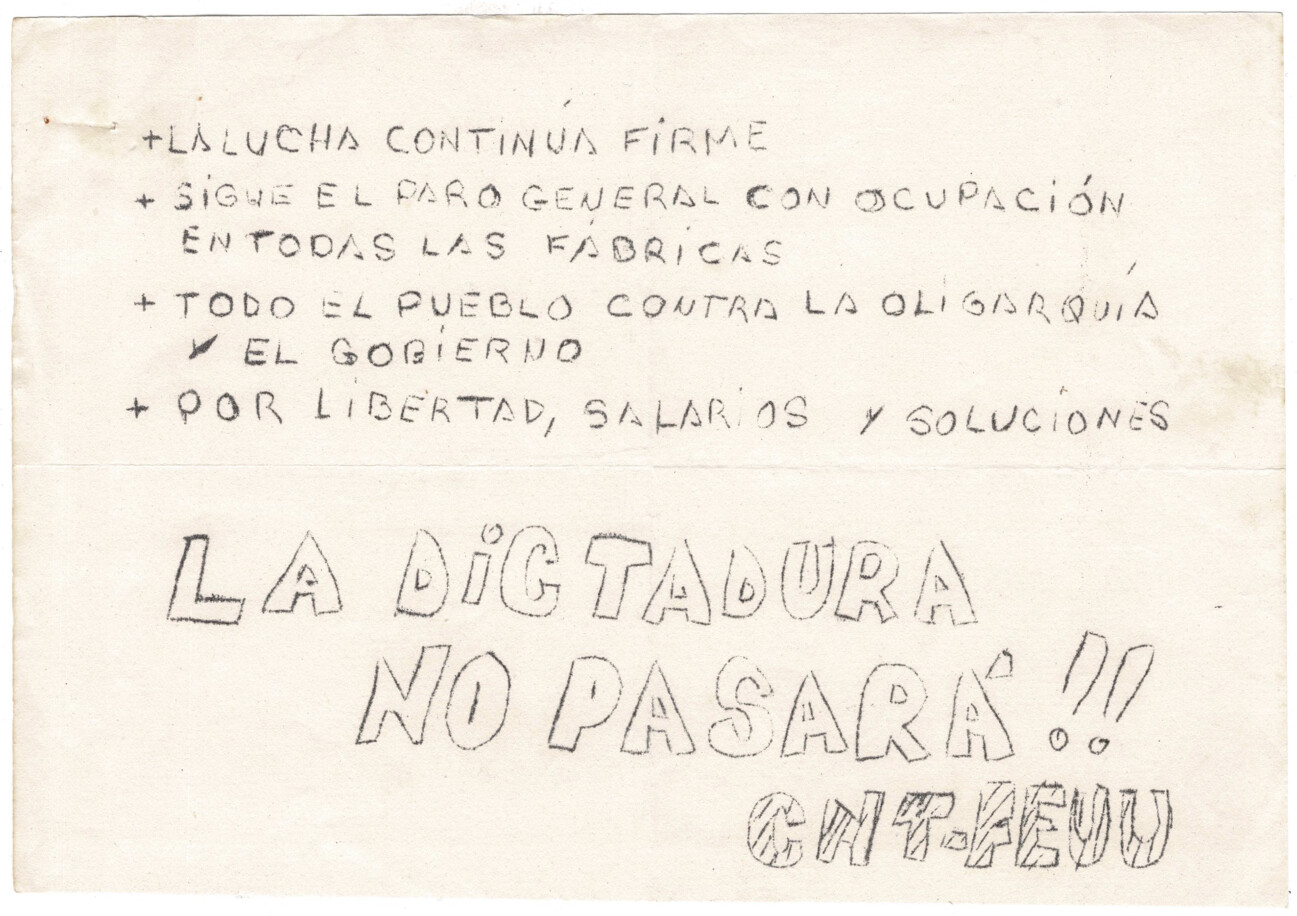 + LA LUCHA CONTINÚA FIRME
+ SIGUE EL PARO GENERAL CON OCUPACIÓN
EN TODAS LAS FÁBRICAS
+ TODO EL PUEBLO CONTRA LA OLIGARQUÍA
Y EL GOBIERNO
+ POR LIBERTAD, SALARIOS Y SOLUCIONES
LA DICTADURA
NO PASARÁ!!
CNT-FEUU